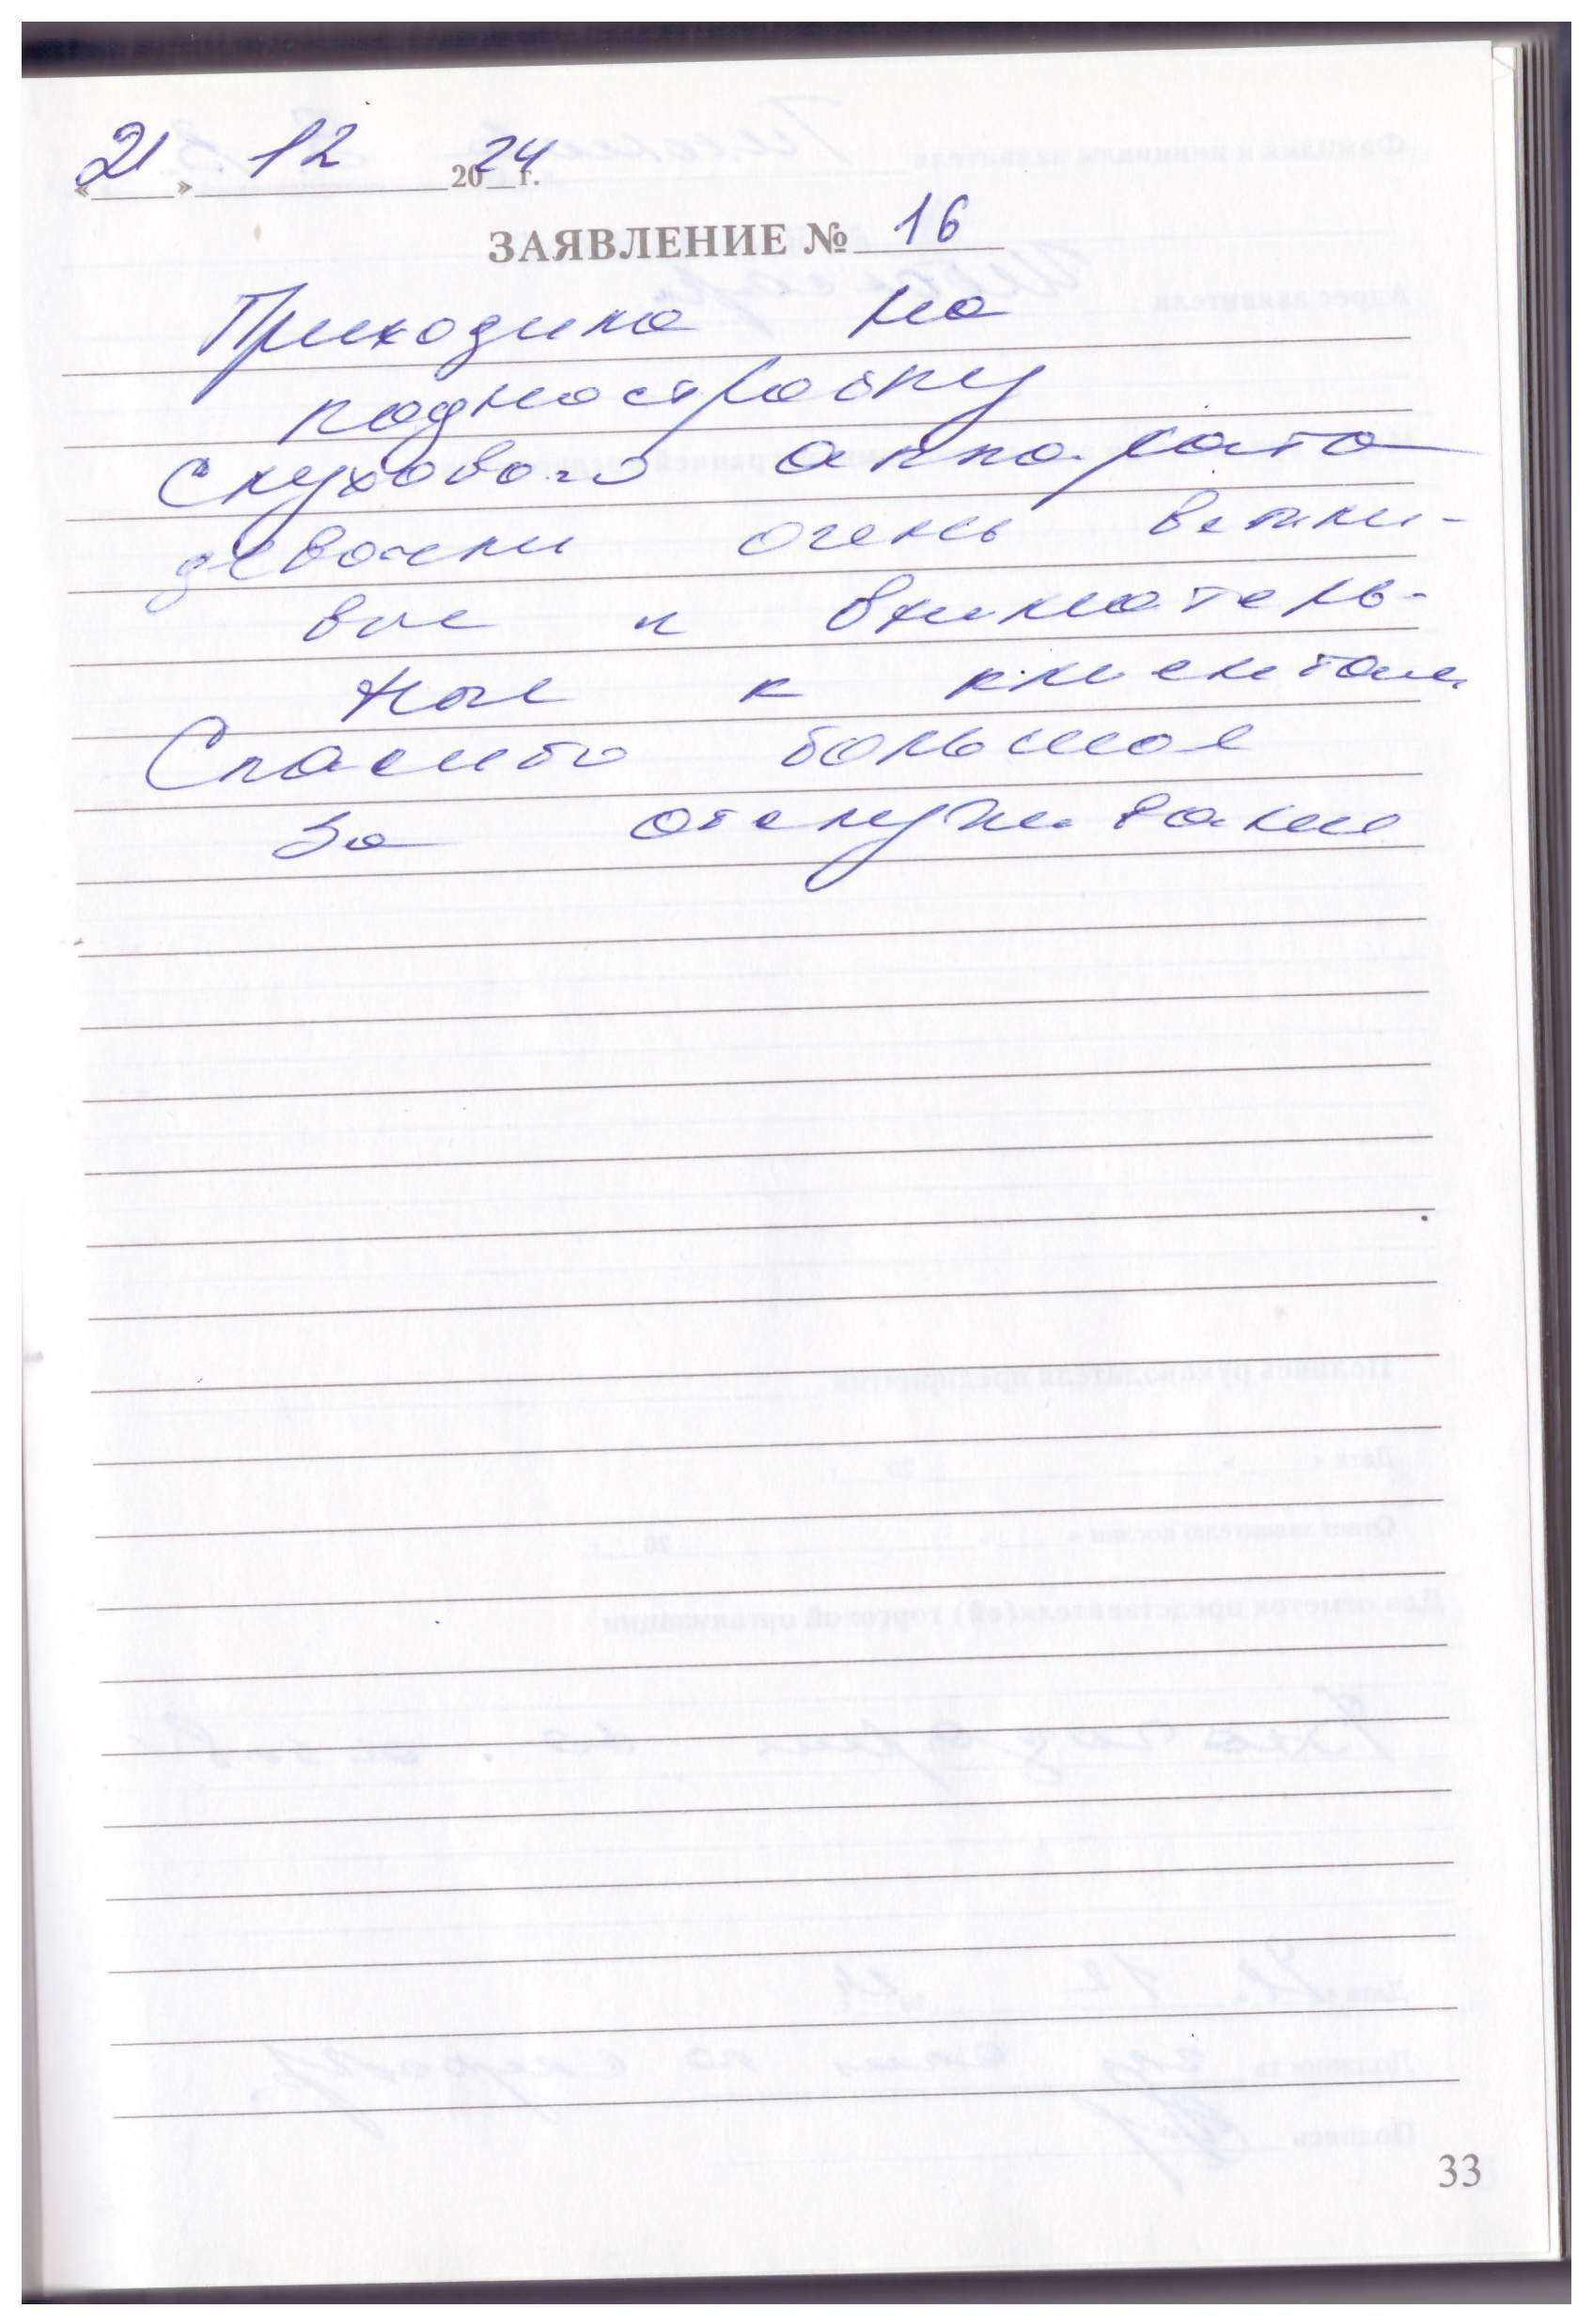 «21» 12 2024 г.
ЗАЯВЛЕНИЕ № 16
Приходила на
поднастройку
слухового аппарата
девочки очень вежли-
вые и вниматель-
ные к клиентам
Спасибо большое
за отслуживание
33